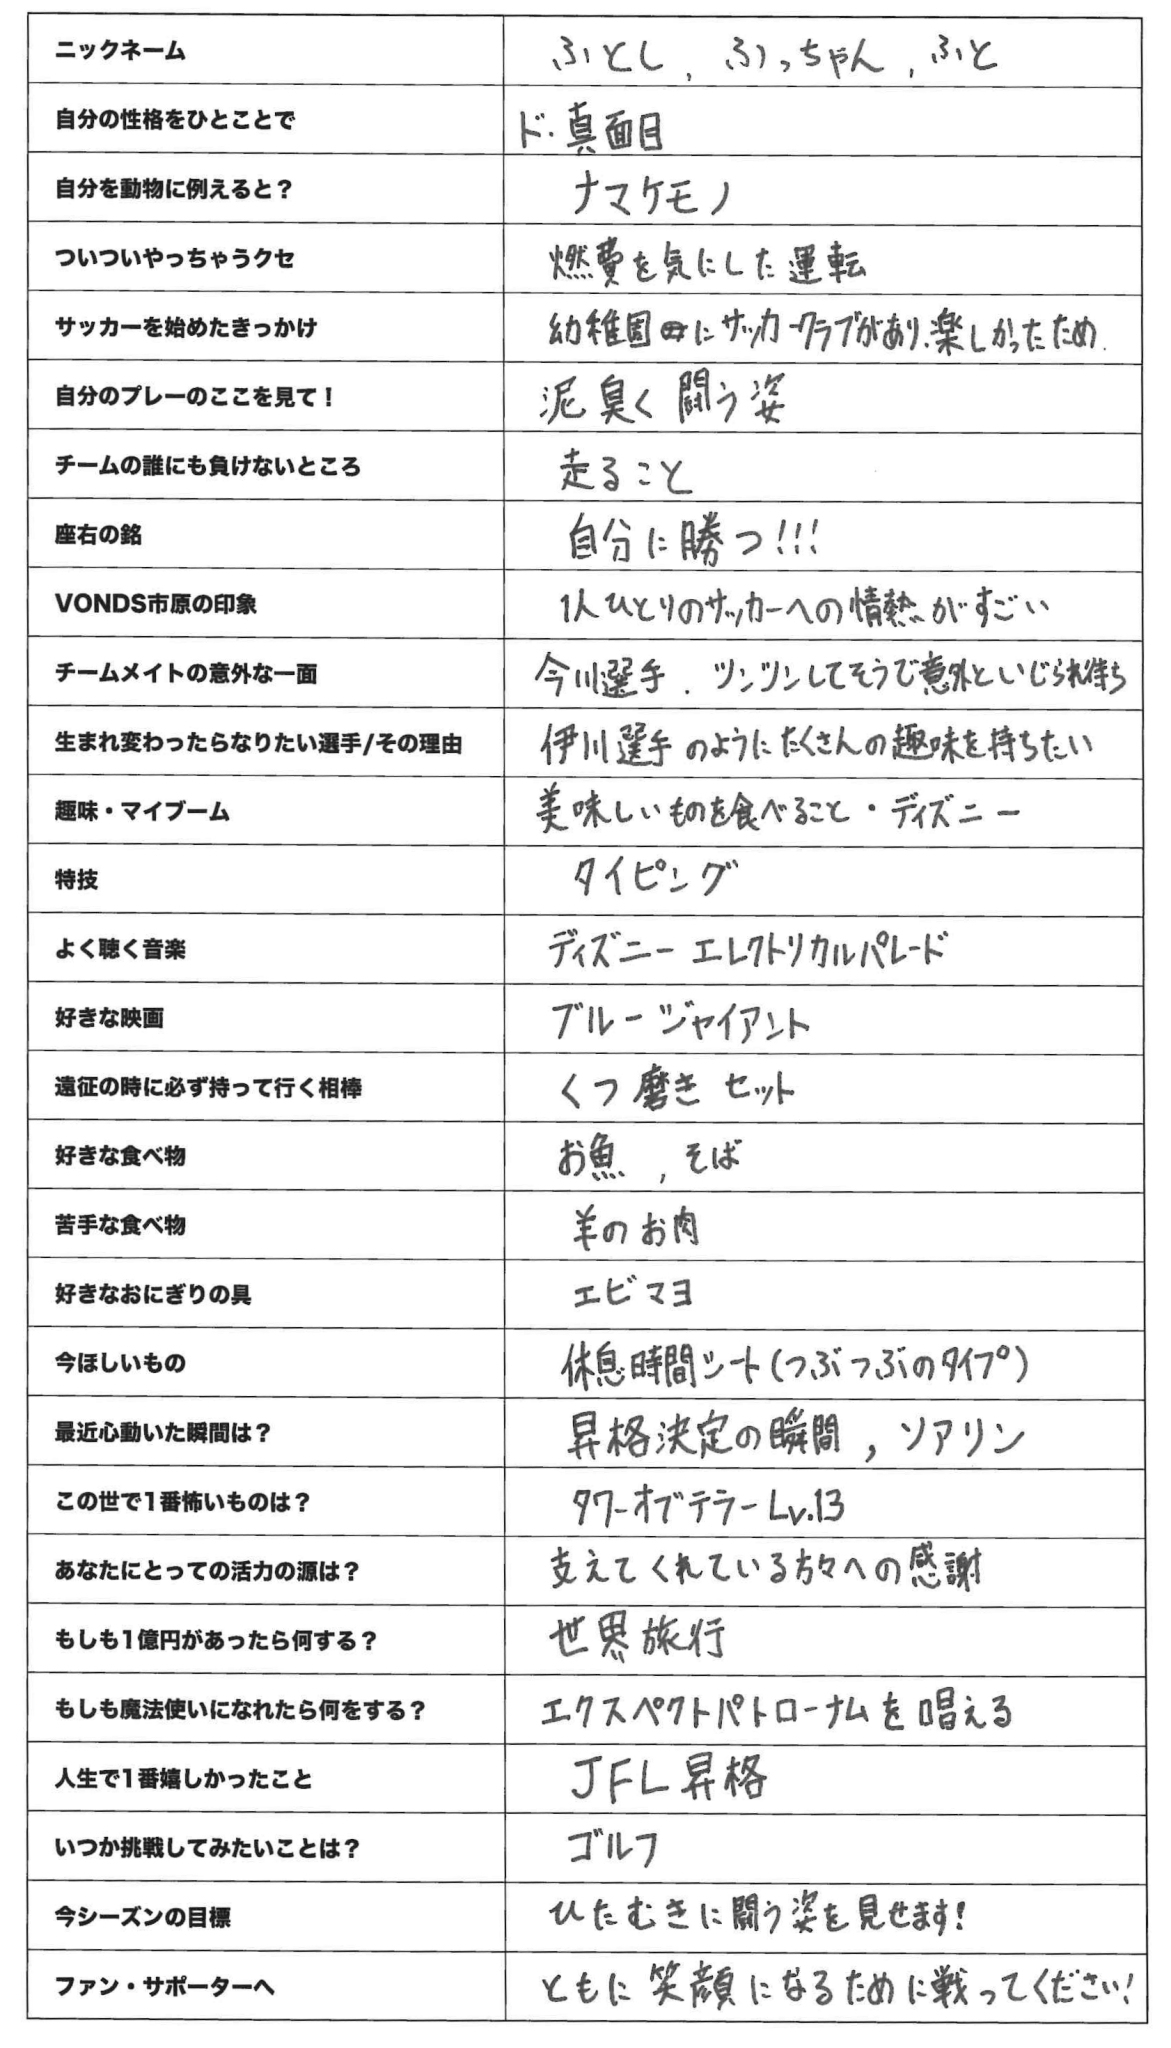 ニックネーム ふとし, ふっちゃん, ふと
自分の性格をひとことで ド・真面目
自分を動物に例えると？ ナマケモノ
ついついやっちゃうクセ 燃費を気にした運転
サッカーを始めたきっかけ 幼稚園にサッカークラブがあり、楽しかったため.
自分のプレーのここを見て！ 泥臭く闘う姿
チームの誰にも負けないところ 走ること
座右の銘 自分に勝つ!!!
VONDS市原の印象 1人ひとりのサッカーへの情熱がすごい
チームメイトの意外な一面 今川選手. ツンツンしてそうで意外といじられ待ち
生まれ変わったらなりたい選手/その理由 伊川選手のようにたくさんの趣味を持ちたい
趣味・マイブーム 美味しいものを食べること・ディズニー
特技 タイピング
よく聴く音楽 ディズニー エレクトリカルパレード
好きな映画 ブルージャイアント
遠征の時に必ず持って行く相棒 くつ磨きセット
好きな食べ物 お魚, そば
苦手な食べ物 羊のお肉
好きなおにぎりの具 エビマヨ
今ほしいもの 休息時間シート(つぶつぶのタイプ)
最近心動いた瞬間は？ 昇格決定の瞬間, ソアリン
この世で1番怖いものは？ タワーオブテラーLv.13
あなたにとっての活力の源は？ 支えてくれている方々への感謝
もしも1億円があったら何する？ 世界旅行
もしも魔法使いになれたら何をする？ エクスペクトパトローナムを唱える
人生で1番嬉しかったこと JFL昇格
いつか挑戦してみたいことは？ ゴルフ
今シーズンの目標 ひたむきに闘う姿を見せます!
ファン・サポーターへ ともに笑顔になるために戦ってください!